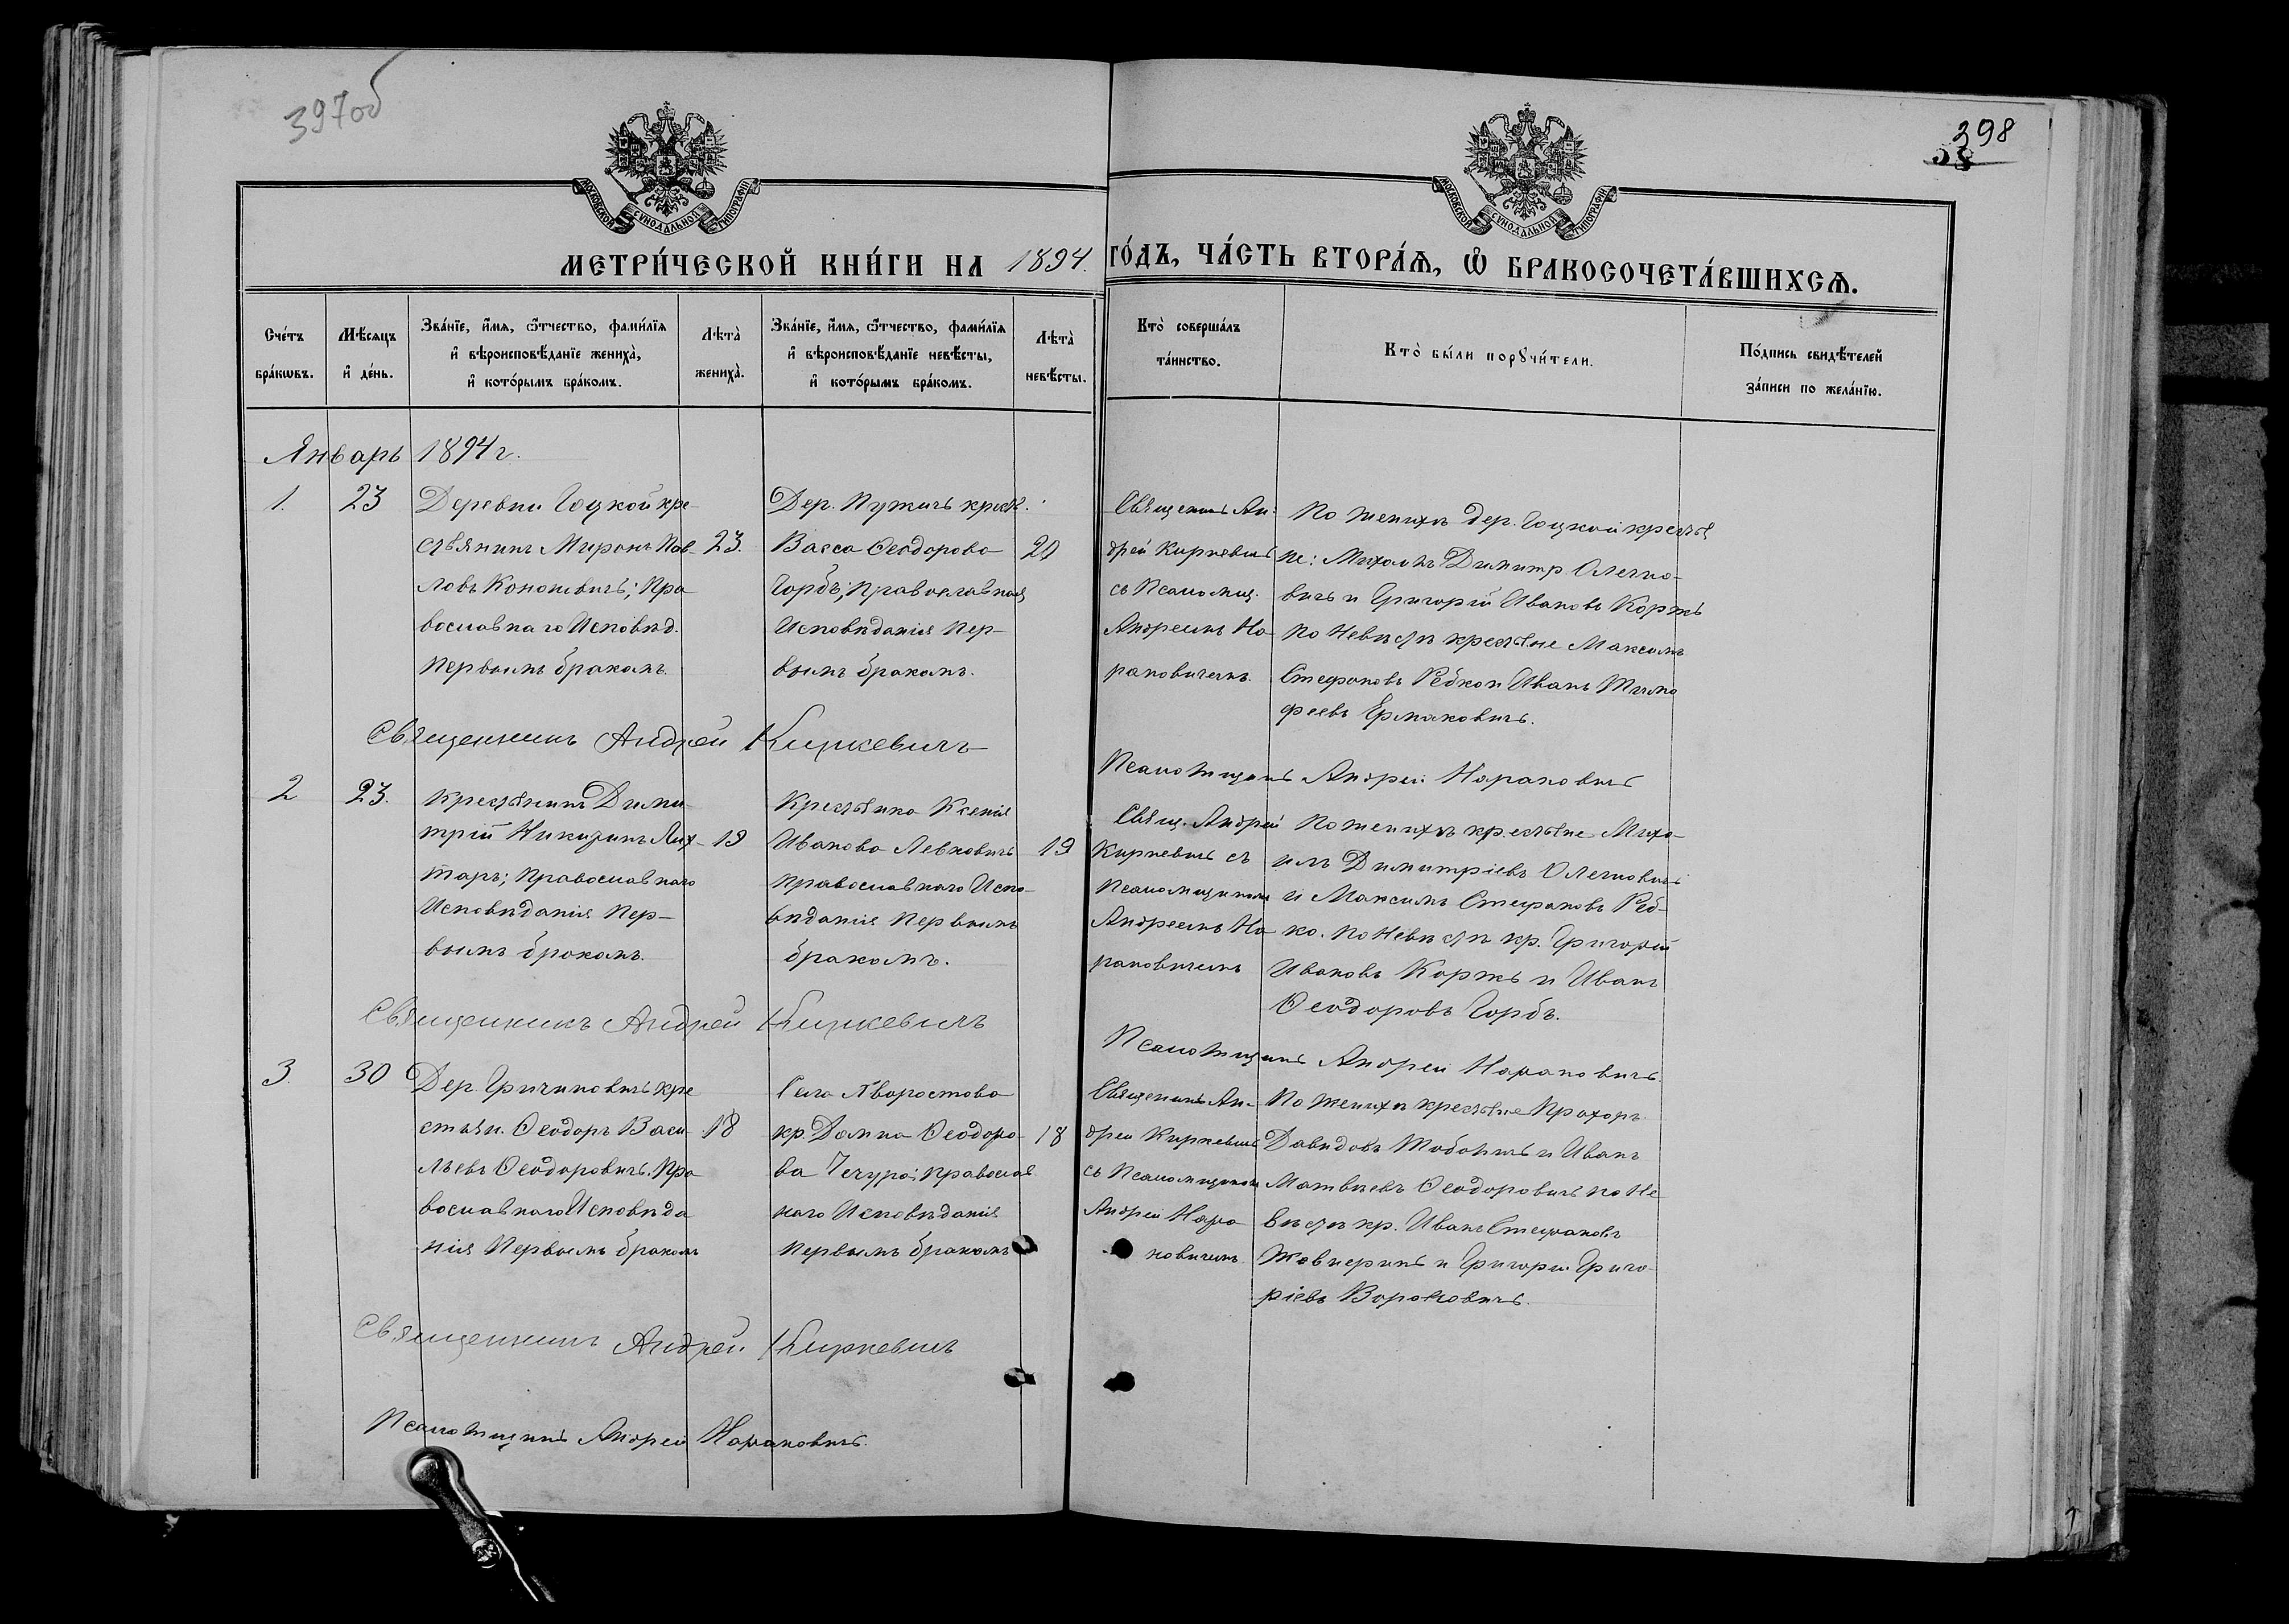 397об
398
58
МОСКОВСКОЙ СѴНОДАЛЬНОЙ ТИПОГРАФІИ
МОСКОВСКОЙ СѴНОДАЛЬНОЙ ТИПОГРАФІИ
МЕТРИ́ЧЕСКОЙ КНИ́ГИ НА 1894. ГО́ДЪ, ЧА́СТЬ ВТОРА́Ѧ, Ѽ БРАКОСОЧЕТА́ВШИХСѦ.
Сче́тъ
бра́кѡвъ.
Мѣ́сѧцъ
и҆ де́нь.
Зва́нїе, и҆́мѧ, ѻ҆́тчество, фами́лїѧ
и҆ вѣроисповѣ́данїе жениха̀,
и҆ кото́рымъ бра́комъ.
Лѣ́та̀
жениха̀.
Зва́нїе, и҆́мѧ, ѻ҆́тчество, фами́лїѧ
и҆ вѣроисповѣ́данїе невѣ́сты,
и҆ кото́рымъ бра́комъ.
Лѣ́та̀
невѣ́сты.
Кто̀ соверша́лъ
та́инство.
Кто̀ бы́ли порꙋчи́тели.
По́дпись свидѣ́телей
за́писи по жела́нїю.
Январь 1894 г.
1.
23
Деревни Гоцкой кре-
стьянинъ Миронъ Пав-
ловъ Кононевичъ; Пра
вославнаго Исповѣд.
Первымъ бракомъ.
23.
Дер. Пужичъ крест.
Васса Ѳеодорова
Горбъ; православная
Исповѣданія Пер-
вымъ бракомъ.
20
Священникъ Ан-
дрей Киркевичъ
съ Псаломщ.
Андреемъ На-
рановичемъ.
По женихѣ дер. Гоцкой крестья
не: Михаилъ Димитр. Олехно-
вичъ и Григорій Ивановъ Коржъ
по Невѣстѣ крестьяне Максимъ
Стефановъ Редко и Иванъ Тимо
феевъ Ермаковичъ.
Священникъ Андрей Киркевичъ
Псаломщикъ Андрей Нарановичъ
2
23.
Крестьянинъ Дими-
трій Никитинъ Лих-
тарь; Православнаго
Исповѣданія Пер-
вымъ бракомъ.
19
Крестьянка Ксенія
Иванова Левковичъ
православнаго Испо-
вѣданія Первымъ
бракомъ.
19
Свящ. Андрей
Киркевичъ съ
Псаломщикомъ
Андреемъ На
рановичемъ
По женихѣ крестьяне Миха-
илъ Димитріевъ Олехновичъ
и Максимъ Стефановъ Ред-
ко. по Невѣстѣ кр. Григорій
Ивановъ Коржъ и Иванъ
Ѳеодоровъ Горбъ.
Священникъ Андрей Киркевичъ
Псаломщикъ Андрей Нарановичъ.
3.
30
Дер. Гричиновичъ кре
стьян. Ѳеодоръ Васи-
льевъ Ѳеодоровичъ. Пра
вославнаго Исповѣда
нія Первымъ бракомъ
18
Села Хворостова
кр. Домна Ѳеодоро-
ва Чечура; Православ
наго Исповѣданія
Первымъ бракомъ
18
Священникъ Ан-
дрей Киркевичъ
съ Псаломщикомъ
Андрей Нара
новичемъ.
По женихѣ крестьяне Прохоръ
Давидовъ и Иванъ
Матвѣевъ Ѳеодоровичъ по Не-
вѣстѣ кр. Иванъ Стефановъ
и Григорій Григо-
ріевъ
Священникъ Андрей Киркевичъ
Псаломщикъ Андрей Нарановичъ.